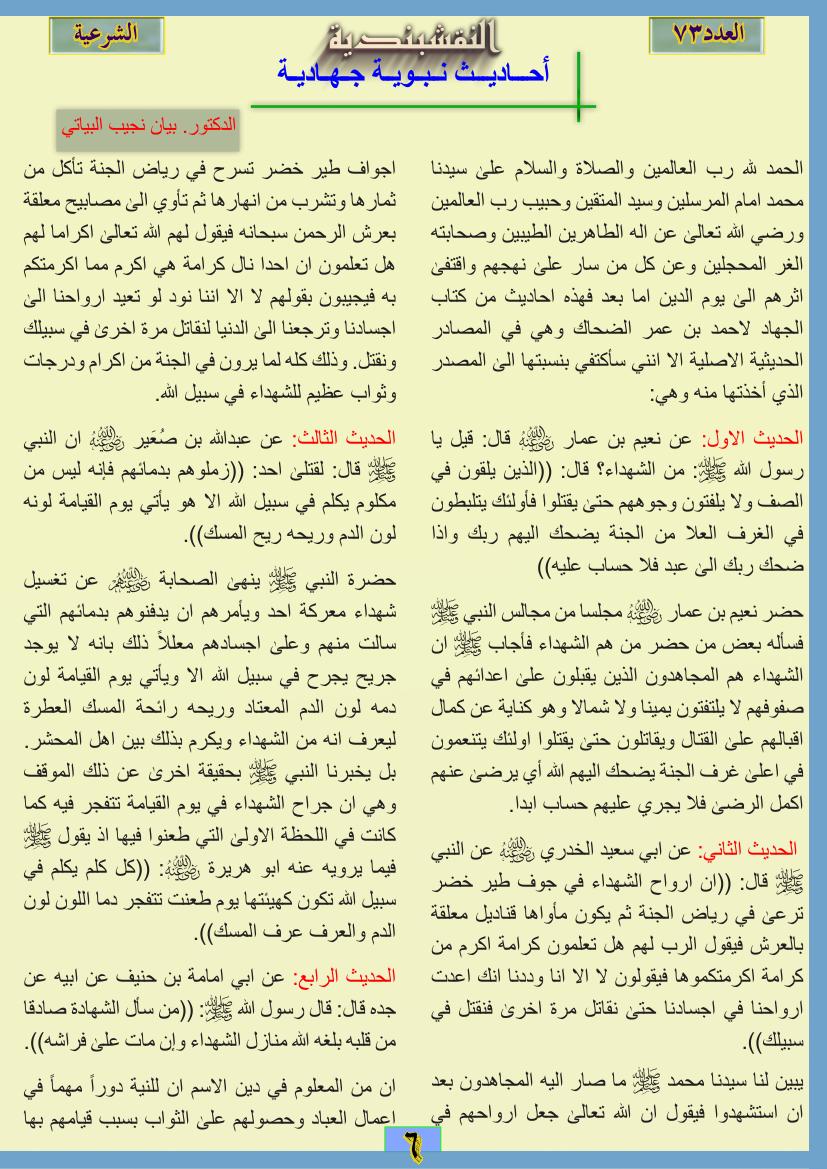 العدد٧٣
النقشبندية
الشرعية
أحـــاديـــث نـــبـــويـــة جـــهـــاديـــة
الدكتور. بيان نجيب البياتي
الحمد لله رب العالمين والصلاة والسلام على سيدنا
محمد امام المرسلين وسيد المتقين وحبيب رب العالمين
ورضي الله تعالى عن اله الطاهرين الطيبين وصحابته
الغر المحجلين وعن كل من سار على نهجهم واقتفى
اثرهم الى يوم الدين اما بعد فهذه احاديث من كتاب
الجهاد لاحمد بن عمر الضحاك وهي في المصادر
الحديثية الاصلية الا انني سأكتفي بنسبتها الى المصدر
الذي أخذتها منه وهي:
الحديث الاول: عن نعيم بن عمار رضي الله عنه قال: قيل يا
رسول الله ﷺ: من الشهداء؟ قال: ((الذين يلقون في
الصف ولا يلفتون وجوههم حتى يقتلوا فأولئك يتلبطون
في الغرف العلا من الجنة يضحك اليهم ربك واذا
ضحك ربك الى عبد فلا حساب عليه))
حضر نعيم بن عمار رضي الله عنه مجلسا من مجالس النبي ﷺ
فسأله بعض من حضر من هم الشهداء فأجاب ﷺ ان
الشهداء هم المجاهدون الذين يقبلون على اعدائهم في
صفوفهم لا يلتفتون يمينا ولا شمالا وهو كناية عن كمال
اقبالهم على القتال ويقاتلون حتى يقتلوا اولئك يتنعمون
في اعلى غرف الجنة يضحك اليهم الله أي يرضى عنهم
اكمل الرضى فلا يجري عليهم حساب ابدا.
الحديث الثاني: عن ابي سعيد الخدري رضي الله عنه عن النبي
ﷺ قال: ((ان ارواح الشهداء في جوف طير خضر
ترعى في رياض الجنة ثم يكون مأواها قناديل معلقة
بالعرش فيقول الرب لهم هل تعلمون كرامة اكرم من
كرامة اكرمتكموها فيقولون لا الا انا وددنا انك اعدت
ارواحنا في اجسادنا حتى نقاتل مرة اخرى فنقتل في
سبيلك)).
يبين لنا سيدنا محمد ﷺ ما صار اليه المجاهدون بعد
ان استشهدوا فيقول ان الله تعالى جعل ارواحهم في
اجواف طير خضر تسرح في رياض الجنة تأكل من
ثمارها وتشرب من انهارها ثم تأوي الى مصابيح معلقة
بعرش الرحمن سبحانه فيقول لهم الله تعالى اكراما لهم
هل تعلمون ان احدا نال كرامة هي اكرم مما اكرمتكم
به فيجيبون بقولهم لا الا اننا نود لو تعيد ارواحنا الى
اجسادنا وترجعنا الى الدنيا لنقاتل مرة اخرى في سبيلك
ونقتل. وذلك كله لما يرون في الجنة من اكرام ودرجات
وثواب عظيم للشهداء في سبيل الله.
الحديث الثالث: عن عبدالله بن صُعَير رضي الله عنه ان النبي
ﷺ قال: لقتلى احد: ((زملوهم بدمائهم فإنه ليس من
مكلوم يكلم في سبيل الله الا هو يأتي يوم القيامة لونه
لون الدم وريحه ريح المسك)).
حضرة النبي ﷺ ينهى الصحابة رضي الله عنهم عن تغسيل
شهداء معركة احد ويأمرهم ان يدفنوهم بدمائهم التي
سالت منهم وعلى اجسادهم معللاً ذلك بانه لا يوجد
جريح يجرح في سبيل الله الا ويأتي يوم القيامة لون
دمه لون الدم المعتاد وريحه رائحة المسك العطرة
ليعرف انه من الشهداء ويكرم بذلك بين اهل المحشر.
بل يخبرنا النبي ﷺ بحقيقة اخرى عن ذلك الموقف
وهي ان جراح الشهداء في يوم القيامة تتفجر فيه كما
كانت في اللحظة الاولى التي طعنوا فيها اذ يقول ﷺ
فيما يرويه عنه ابو هريرة رضي الله عنه: ((كل كلم يكلم في
سبيل الله تكون كهيئتها يوم طعنت تتفجر دما اللون لون
الدم والعرف عرف المسك)).
الحديث الرابع: عن ابي امامة بن حنيف عن ابيه عن
جده قال: قال رسول الله ﷺ: ((من سأل الشهادة صادقا
من قلبه بلغه الله منازل الشهداء وإن مات على فراشه)).
ان من المعلوم في دين الاسم ان للنية دوراً مهماً في
اعمال العباد وحصولهم على الثواب بسبب قيامهم بها
٦